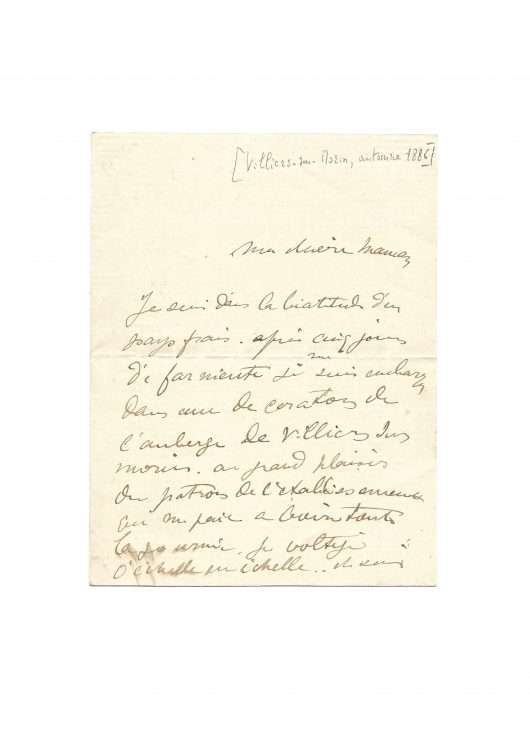 [Villiers-sur-Morin, automne 1886]
ma chère Maman
Je suis dans la béatitude d'un
pays frais. après cinq jours
de farniente je me suis embarq
dans une décoration de
l'auberge de Villiers sur
morin. au grand plaisir
du patron de l'établissement
qui me paie a boire toute
la journée. Je voltige
d'échelle en échelle.. et suis